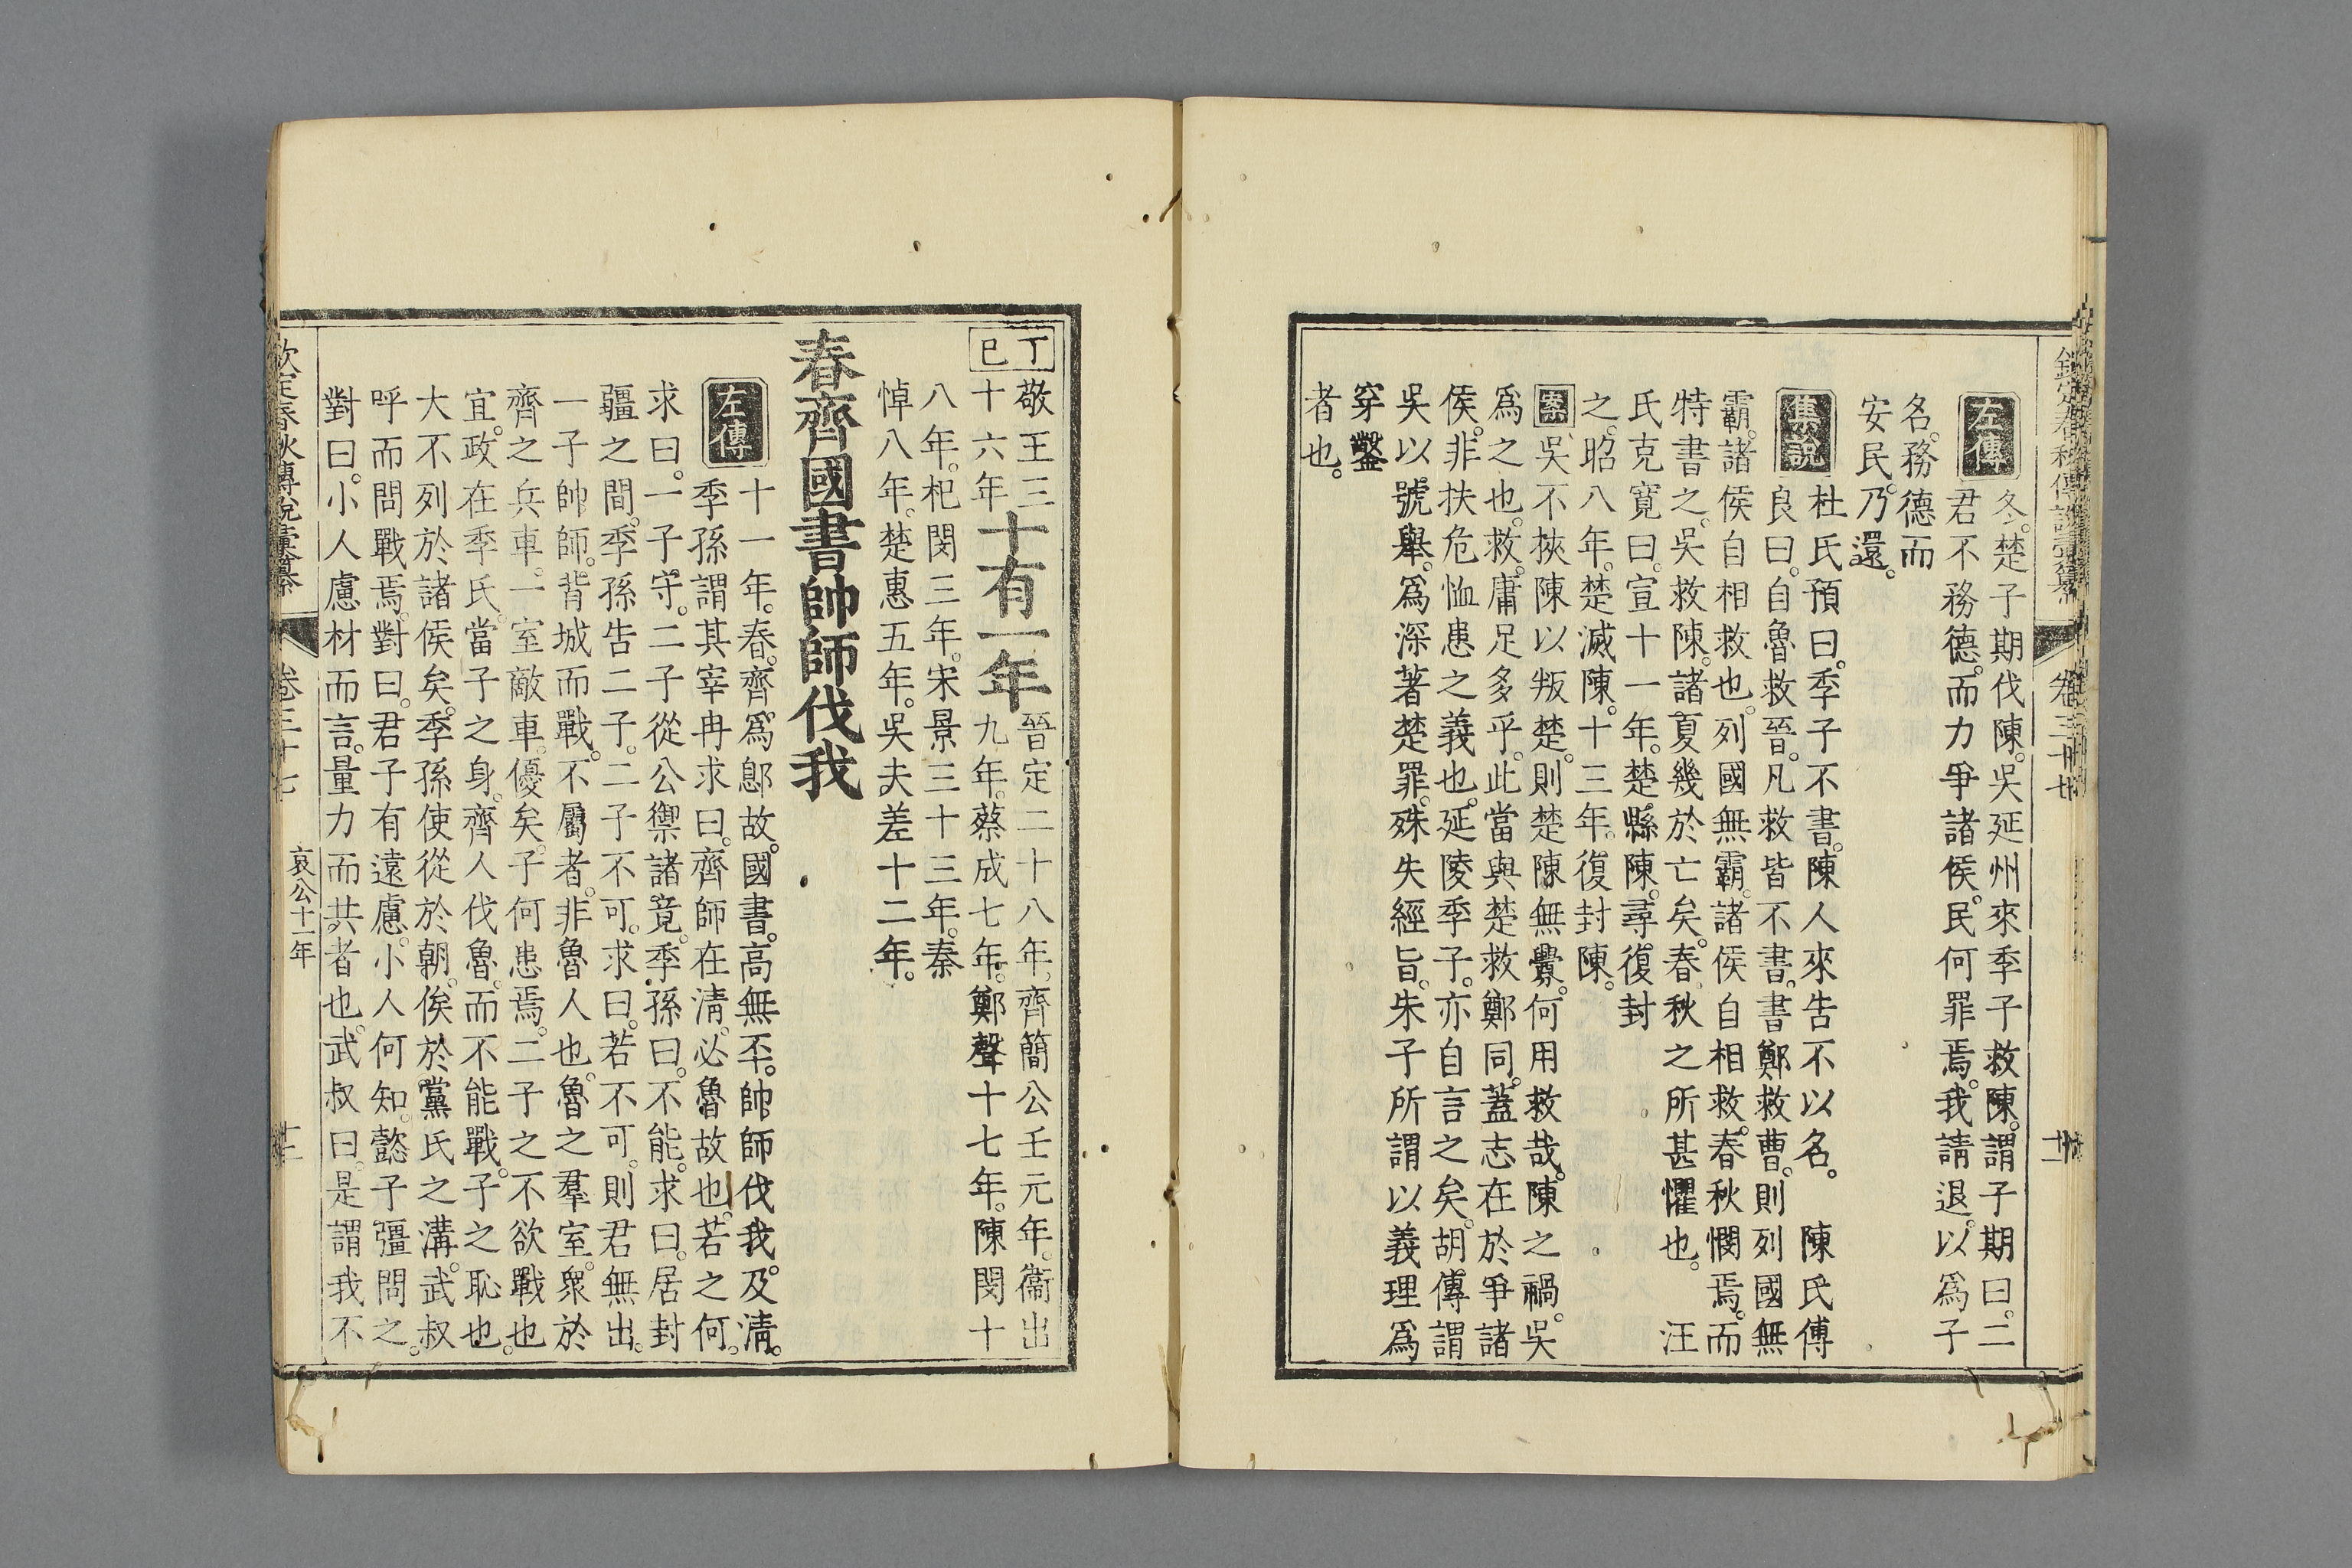 左傳
冬。楚子期伐陳。吳延州來季子救陳。謂子期曰。二
君不務德。而力爭諸侯。民何罪焉。我請退。以爲子
名。務德而
安民。乃還。
集說
杜氏預曰。季子不書。陳人來告不以名。 陳氏傅
良曰。自魯救晉。凡救皆不書。書鄭救曹。則列國無
霸。諸侯自相救也。列國無霸。諸侯自相救。春秋憫焉。而
特書之。吳救陳。諸夏幾於亡矣。春秋之所甚懼也。 汪
氏克寬曰。宣十一年。楚縣陳。尋復封
之。昭八年。楚滅陳。十三年。復封陳。
案吳不挾陳以叛楚。則楚陳無釁。何用救哉。陳之禍。吳
爲之也。救。庸足多乎。此當與楚救鄭同。蓋志在於爭諸
侯。非扶危恤患之義也。延陵季子。亦自言之矣。胡傳謂
吳以號舉。爲深著楚罪。殊失經旨。朱子所謂以義理爲
穿鑿
者也。
丁巳
敬王三十六年
十有一年
晉定二十八年。齊簡公壬元年。衞出
九年。蔡成七年。鄭聲十七年。陳閔十
八年。杞閔三年。宋景三十三年。秦
悼八年。楚惠五年。吳夫差十二年。
春齊國書帥師伐我
左傳
十一年。春。齊爲鄎故。國書。高無㔻。帥師伐我。及清。
季孫謂其宰冉求曰。齊師在清。必魯故也。若之何。
求曰。一子守。二子從公禦諸竟。季孫曰。不能。求曰。居封
疆之間。季孫告二子。二子不可。求曰。若不可。則君無出。
一子帥師。背城而戰。不屬者。非魯人也。魯之羣室。衆於
齊之兵車。一室敵車。優矣。子何患焉。二子之不欲戰也
宜。政在季氏。當子之身。齊人伐魯。而不能戰。子之恥也。
大不列於諸侯矣。季孫使從於朝。俟於黨氏之溝。武叔
呼而問戰焉。對曰。君子有遠慮。小人何知。懿子彊問之。
對曰。小人慮材而言。量力而共者也。武叔曰。是謂我不
欽定春秋傳說彙纂
卷三十七
哀公十一年